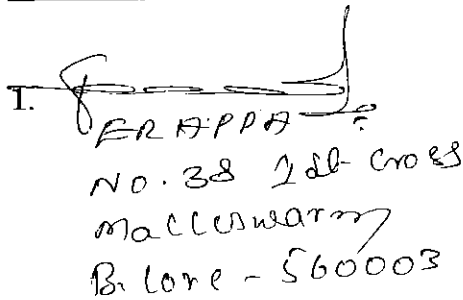 1.
ERAPPA
NO. 38 1st Cross
Malleswaram
B. lore - 560003